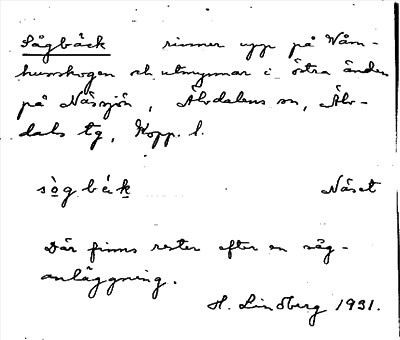 Sågbäck rinner upp på Våm-
husskogen och utmynnar i östra änden
på Nässjön, Älvdalens sn, Älv-
dals tg, Kopp. l.
sò̱g bä́k̲ Näset
Där finns rester efter en såg-
anläggning.
H. Lindberg 1931.